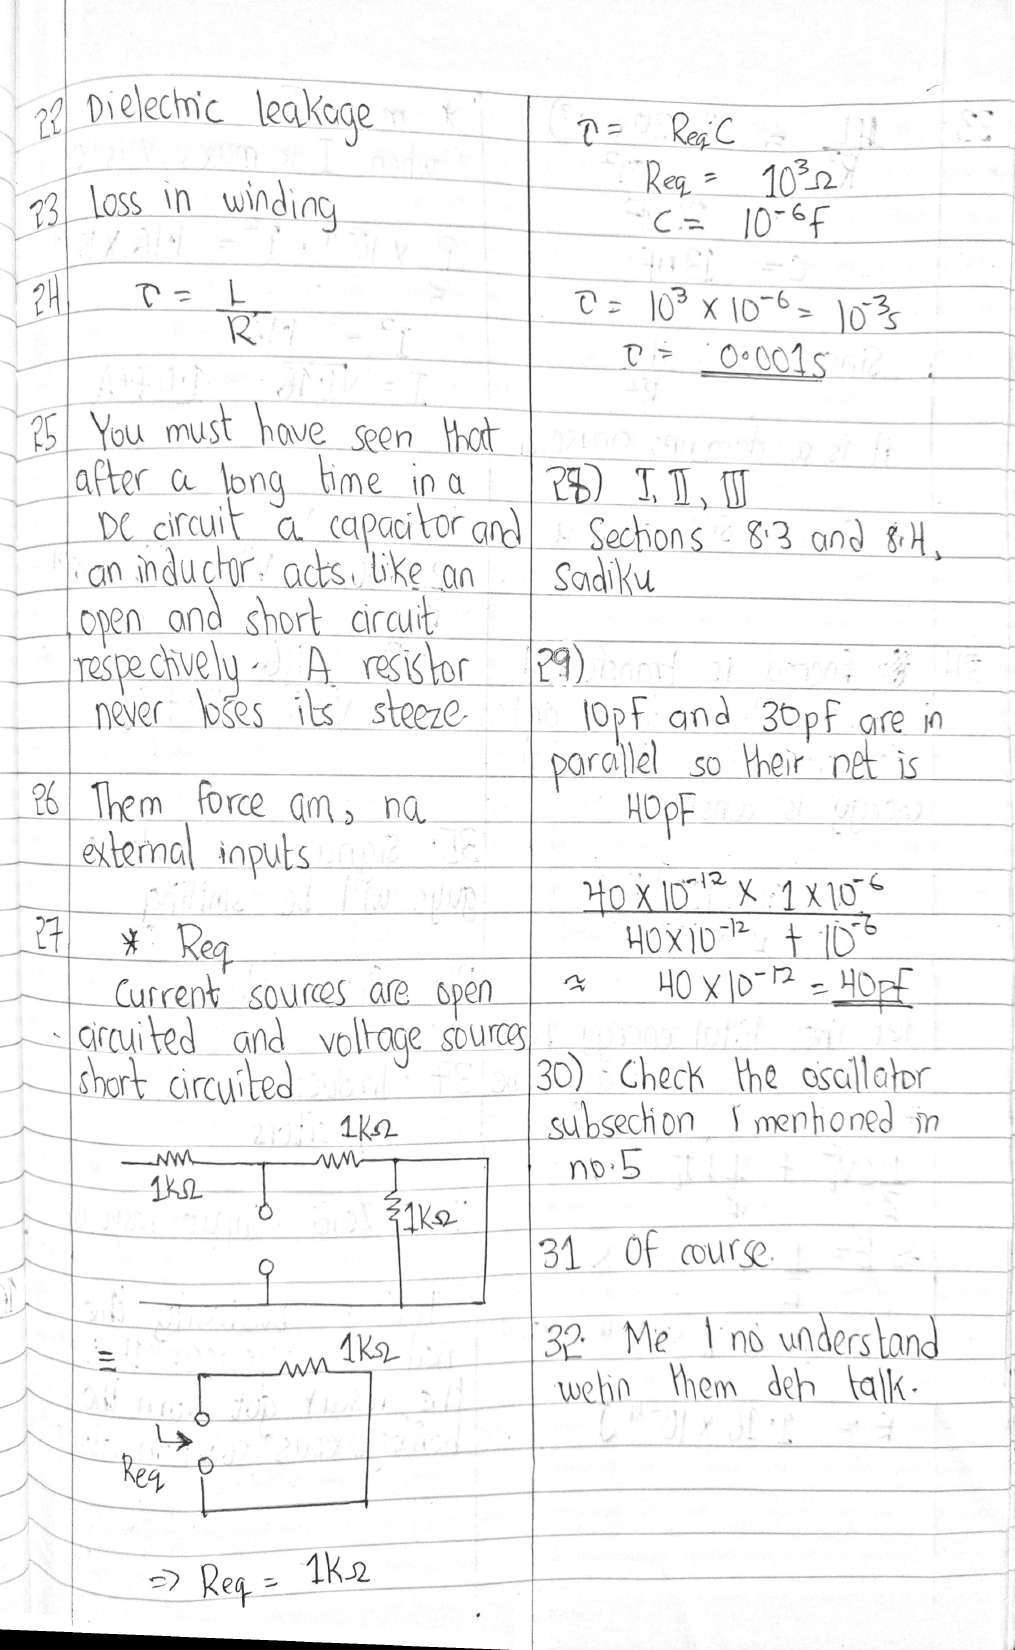 22 Dielectric leakage
23 Loss in winding
24 τ = L
R
25 You must have seen that
after a long time in a
DC circuit a capacitor and
an inductor acts like an
open and short circuit
respectively. A resistor
never loses its steeze.
26 Them force am, na
external inputs
27 * Req
Current sources are open
circuited and voltage sources
short circuited
1KΩ
1KΩ
1KΩ
≡ 1KΩ
Req
=> Req = 1KΩ
τ = Req C
Req = 10³Ω
C = 10⁻⁶F
τ = 10³ × 10⁻⁶ = 10⁻³s
τ = 0.001s
28) I, II, III
Sections 8.3 and 8.4,
Sadiku
29)
10pF and 30pF are in
parallel so their net is
40pF
40×10⁻¹² × 1×10⁻⁶
40×10⁻¹² + 10⁻⁶
≈ 40×10⁻¹² = 40pF
30) Check the oscillator
subsection I mentioned in
no.5
31 Of course.
32. Me I no understand
wetin them deh talk.